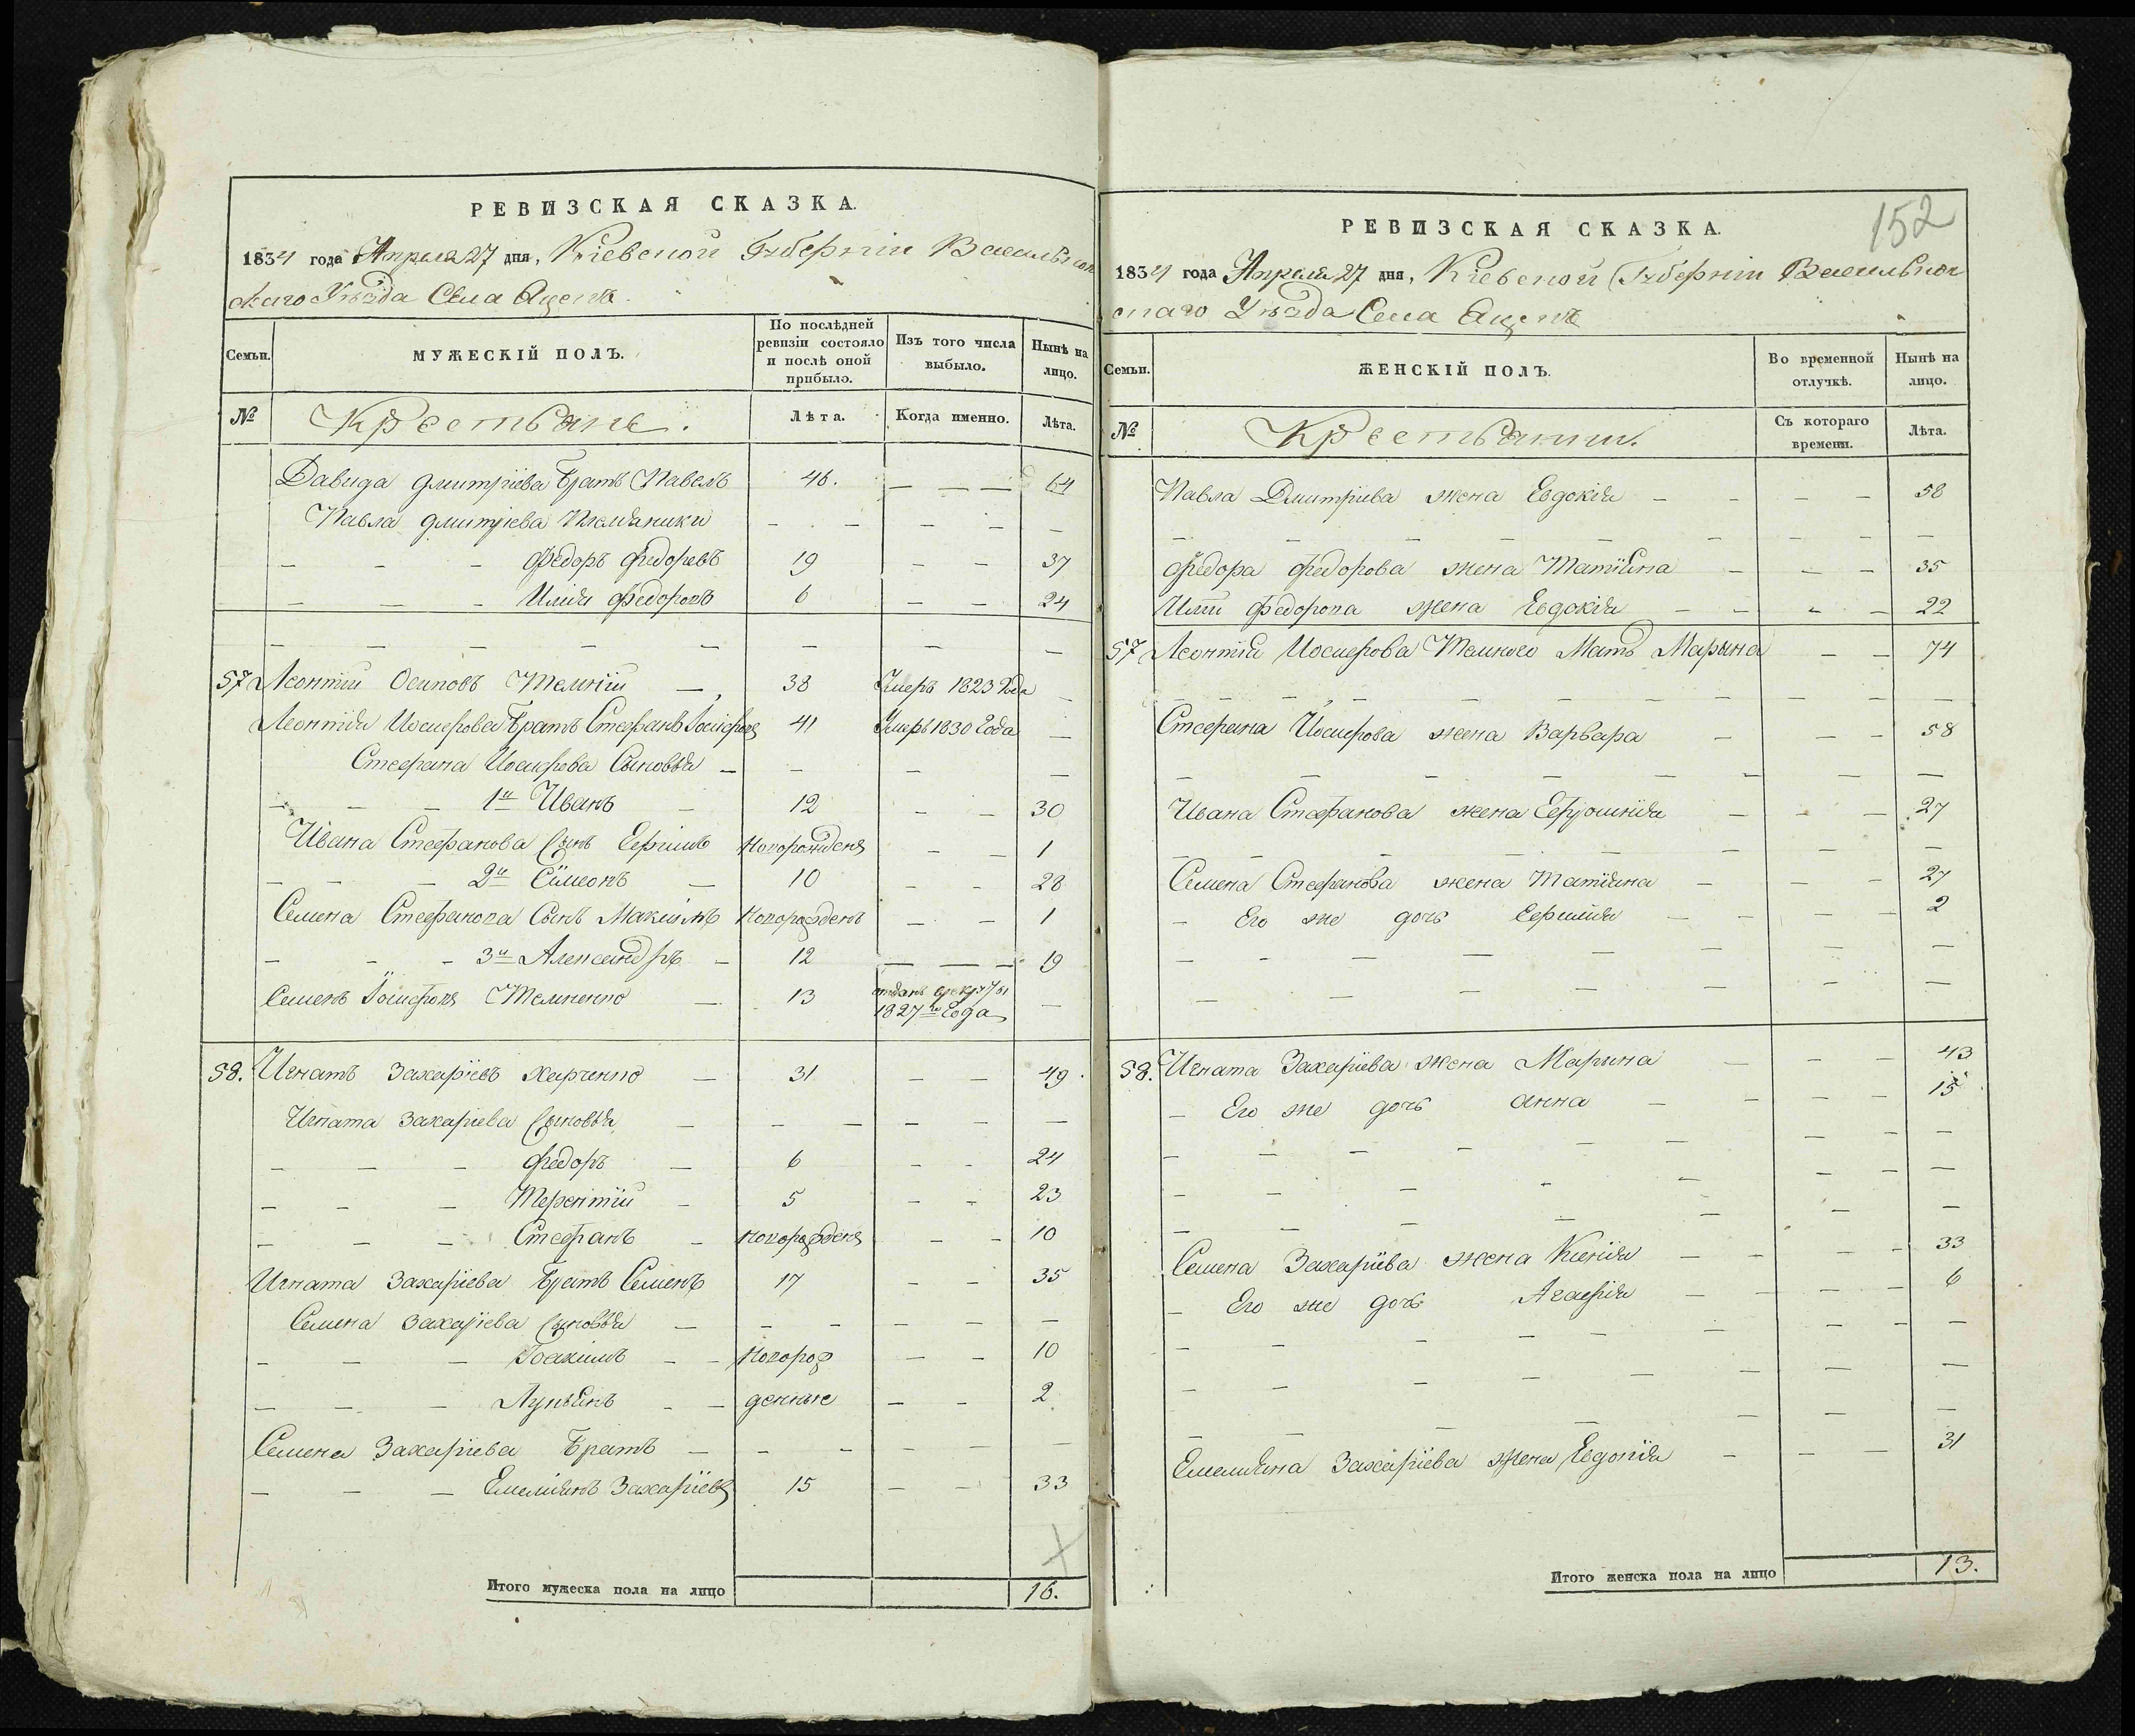 РЕВИЗСКАЯ СКАЗКА.
1834 года Апреля 27 дня, Кіевской Губерніи Васильков
скаго Уѣзда Села
Семьи.
МУЖЕСКІЙ ПОЛЪ.
По послѣдней ревизіи состояло и послѣ оной прибыло.
Изъ того числа выбыло.
Нынѣ на лицо.
№ Крестьяне. Лѣта. Когда именно. Лѣта.
Давида Дмитріева Братъ Павелъ 46. — — — 64
Павла Дмитріева Племяники — — — — —
— — — Федоръ Федоровъ 19 — — 37
— — — Илия Федоровъ 6 — — 24
— — — — — — — —
57 Леонтій Осиповъ Темній — 38 Умеръ 1823 Года —
Леонтія Иосифова Братъ Стефанъ Іосифовъ 41 Умеръ 1830 Года —
Стефана Иосифова Сыновья — — — —
— — — 1й Иванъ — 12 — — 30
Ивана Стефанова Сынъ Ефримъ Новорожденъ — — 1
— — — 2й Симеонъ — 10 — — 28
Семена Стефанова Сынъ Максимъ Новорожденъ — — 1
— — — 3й Александръ — 12 — — — 19
Семенъ Іосифовъ Темненко — 13 отданъ в рекруты 1827го Года —
58. Игнатъ Захаріевъ Харченко — 31 — — 49
Игната Захаріева Сыновья — — — — — —
— — — Федоръ — 6 — — 24
— — — Терентій — 5 — — 23
— — — Стефанъ — Новорожденъ — — 10
Игната Захаріева Братъ Семенъ 17 — — 35
Семена Захаріева Сыновья — — — — — —
— — — Іоакимъ — — Новорож — — 10
— — — Лукьянъ — — денные — — 2
Семена Захаріева Братъ — — — — — —
— — — Емелиянъ Захаріевъ 15 — — 33
Итого мужеска пола на лицо 16.
152
РЕВИЗСКАЯ СКАЗКА.
1834 года Апреля 27 дня, Кіевской Губерніи Васильков
скаго Уѣзда Села
Семьи.
ЖЕНСКІЙ ПОЛЪ.
Во временной отлучкѣ.
Нынѣ на лицо.
№ Крестьянки. Съ котораго времени. Лѣта.
Павла Дмитріева жена Евдокія — — — — 58
— — — — — — — — —
Федора Федорова жена Татіяна — — — 35
Илии Федорова жена Евдокія — — — — 22
57 Леонтія Иосифова Темного Мать Марына — — 74
— — — — — — — — —
Стефана Иосифова жена Варвара — — — 58
— — — — — — — —
Ивана Стефанова жена Ефросинія — — — 27
— — — — — — — —
Семена Стефанова жена Татіяна — — — 27
— Его же дочь Ефимія — — — — 2
— — — — — — — —
— — — — — — — —
58. Игната Захаріева жена Марына — — — 43
— Его же дочь Анна — — — — 15
— — — — — — — — —
— — — — — — — —
— — — — — — —
Семена Захаріева жена Ксенія — — — — 33
— Его же дочь Агафія — — — — 6
— — — — — — — — —
— — — — — — — —
— — — — — — —
Емелияна Захаріева жена Евдокія — — — 31
Итого женска пола на лицо 13.